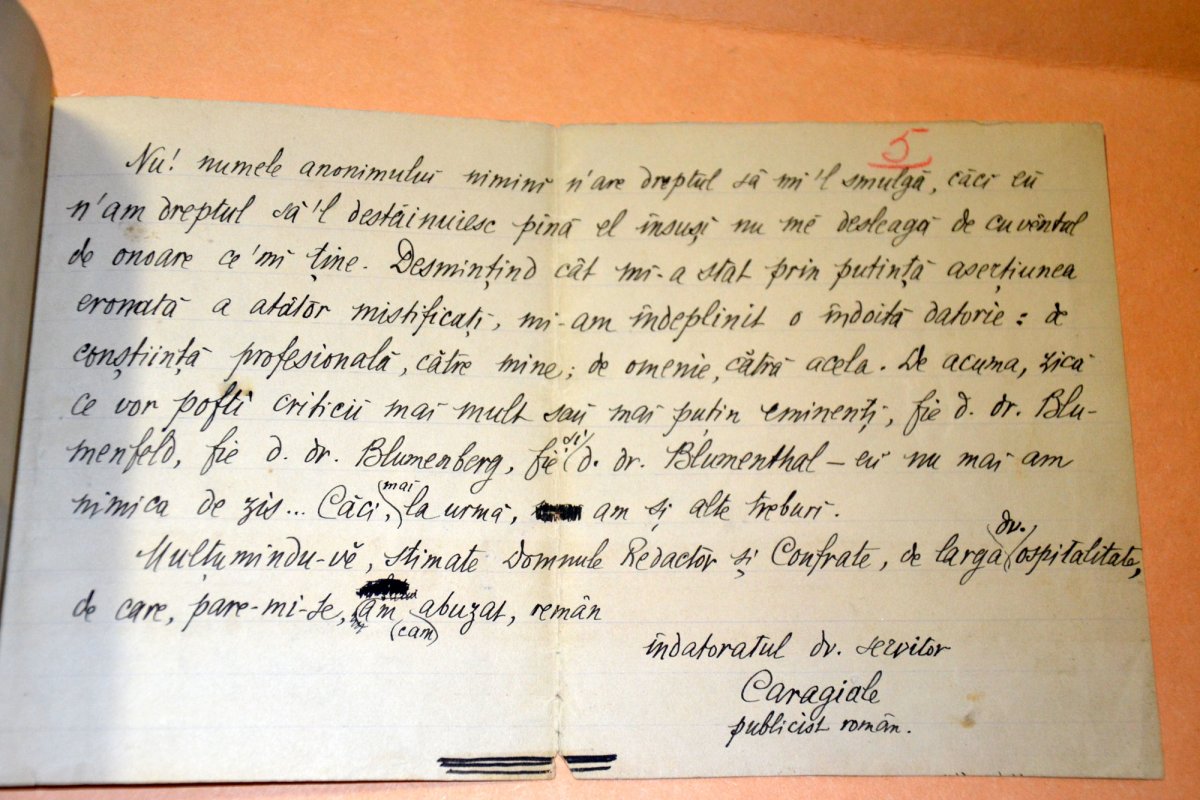 5
Nu! numele anonimului nimini n'are dreptul să mi'l smulgă, căci eŭ
n'am dreptul să'l destăinuiesc pînă el însuși nu mĕ desleagă de cuvêntul
de onoare ce'mi ține. Desmințind cât mi-a stat prin putință aserțiunea
eronată a atâtor mistificați, mi-am îndeplinit o îndoită datorie: de
conștiință profesională, către mine; de omenie, cătră acela. De acuma, zică
ce vor pofti criticii mai mult saŭ mai puțin eminenți, fie d. dr. Blu-
menfeld, fie d. dr. Blumenberg, fie și d. dr. Blumenthal – eŭ nu mai am
nimica de zis... Căci, mai la urmă, am și alte treburi.
Mulțumindu-vĕ, stimate Domnule Redactor și Confrate, de larga dv. ospitalitate,
de care, pare-mi-se, am (cam) abuzat, remân
îndatoratul dv. servitor
Caragiale
publicist român.